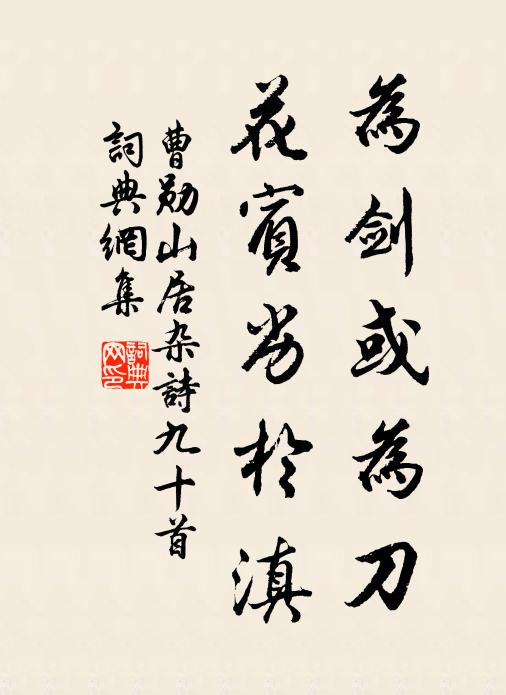 為劍或為刀
花賓劣於滇
曹勛山居杂詩九十首
詞典網集
詞典網印